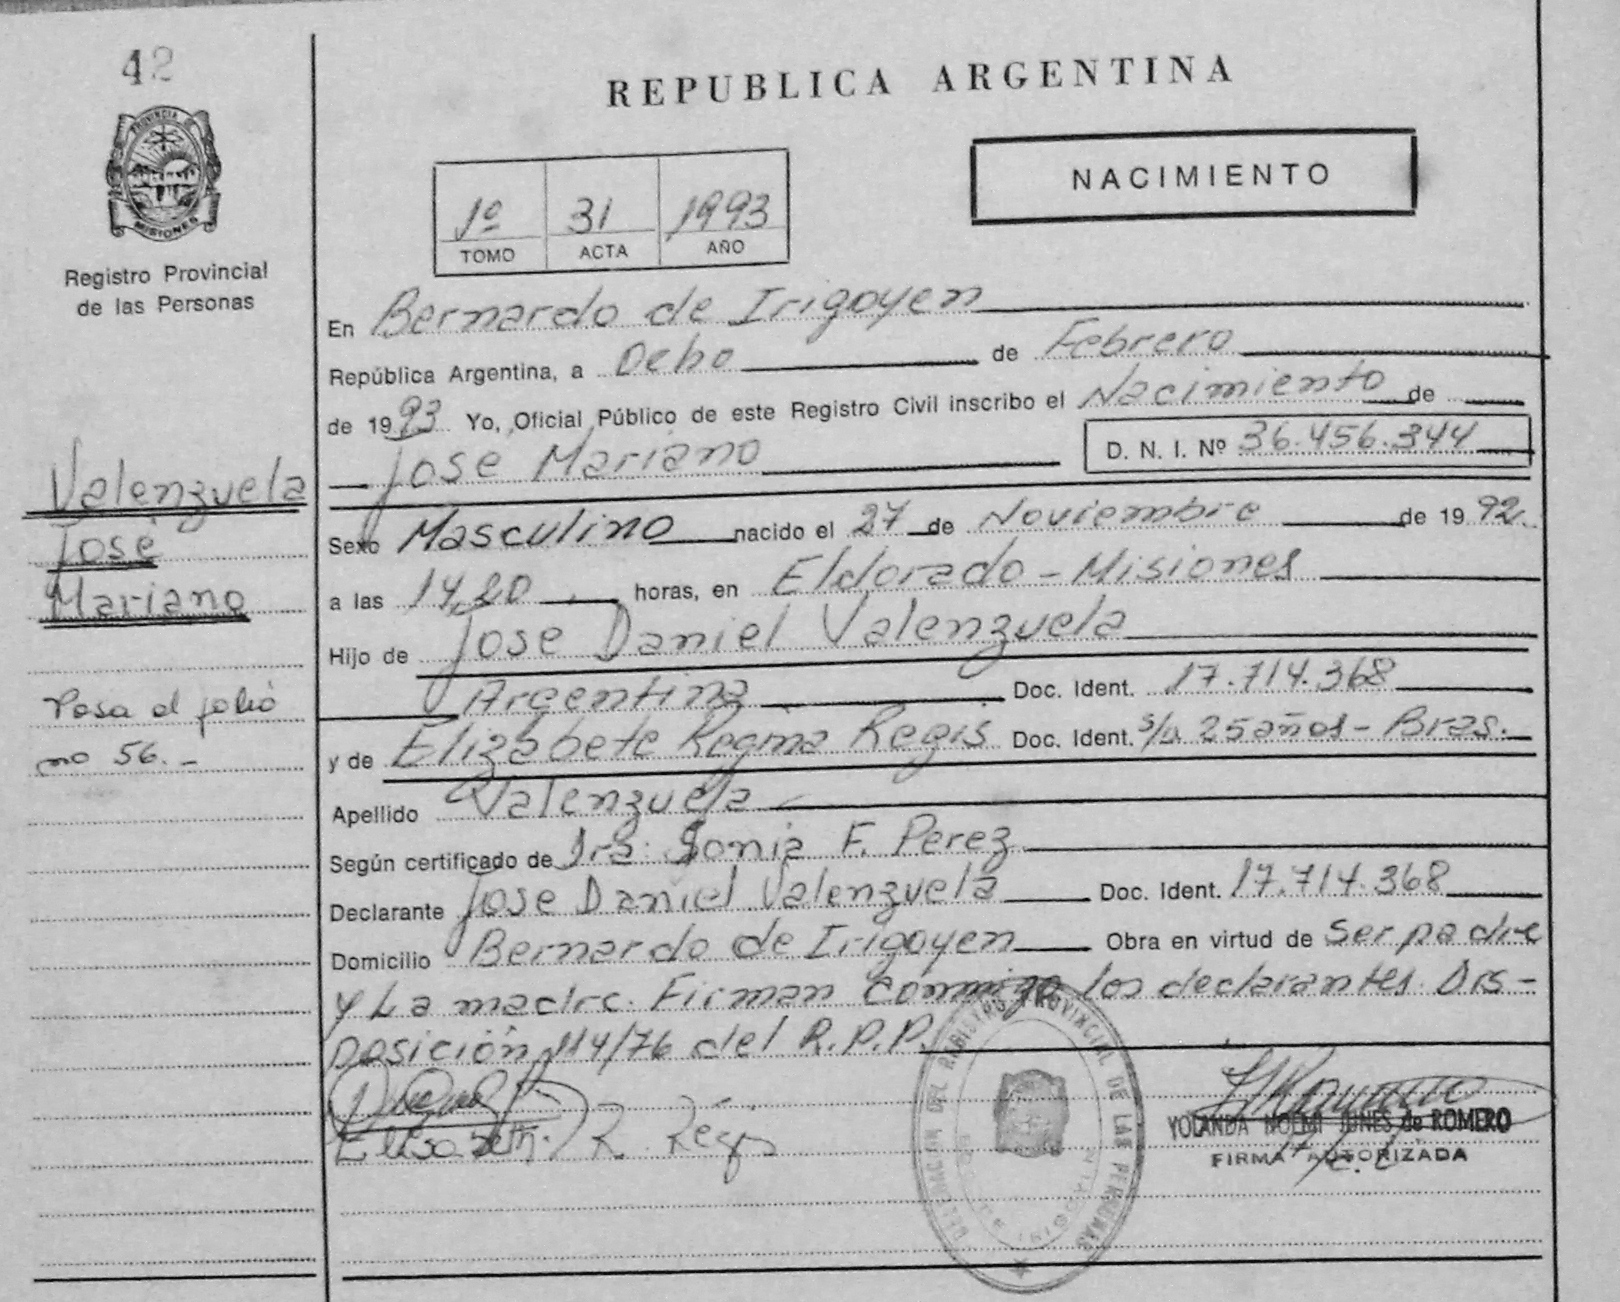 42
PROVINCIA DE
MISIONES
Registro Provincial
de las Personas
REPUBLICA ARGENTINA
NACIMIENTO
1º 31 1993
TOMO ACTA AÑO
En Bernardo de Irigoyen
República Argentina, a Ocho de Febrero
de 1993 Yo, Oficial Público de este Registro Civil inscribo el Nacimiento de
Jose Mariano D. N. I. Nº 36.456.344
Sexo Masculino nacido el 27 de Noviembre de 1992.
a las 14,20 horas, en Eldorado - Misiones
Hijo de Jose Daniel Valenzuela
Argentina Doc. Ident. 17.714.368
y de Elizabete Regina Regis Doc. Ident. s/d 25 años - Bras.
Apellido Valenzuela
Según certificado de Dra. Sonia F. Perez
Declarante Jose Daniel Valenzuela Doc. Ident. 17.714.368
Domicilio Bernardo de Irigoyen Obra en virtud de Ser padre
y La madre. Firman Conmigo los declarantes. Dis-
posición 114/76 del R.P.P.
R. Regis
YOLANDA NOEMI JUNES de ROMERO
FIRMA AUTORIZADA
PROVINCIAL DE LAS PERSONAS
Valenzuela
José
Mariano
Pasa al folio
no 56.-